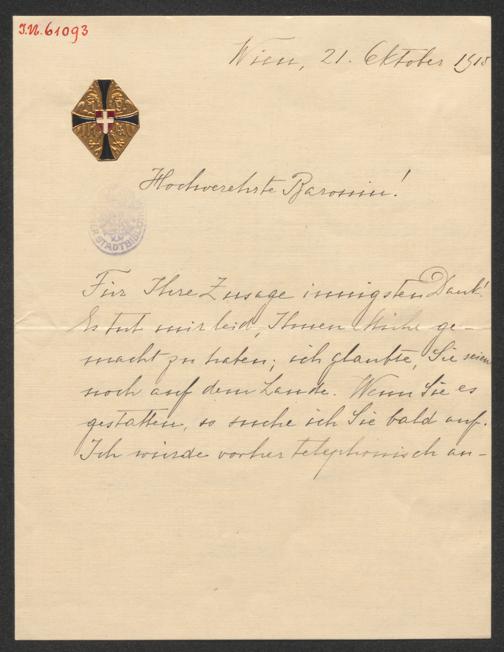 J.N. 61093
Wien, 21. Oktober 1918
Hochverehrte Baronin!
STADTBIBL
Für Ihre Zusage innigsten Dank!
Es tut mir leid, Ihnen Mühe ge-
macht zu haben; ich glaubte, Sie seien
noch auf dem Lande. Wenn Sie es
gestatten, so suche ich Sie bald auf.
Ich würde vorher telephonisch an-